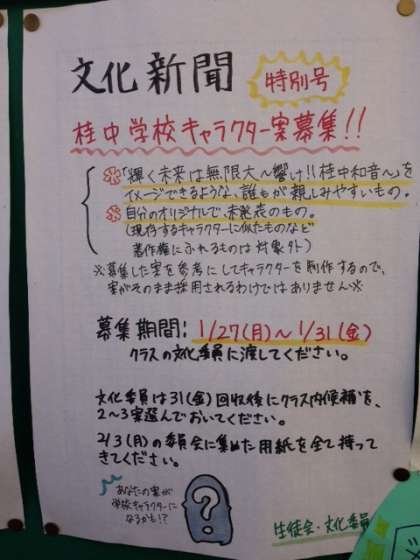 文化新聞
特別号
桂中学校キャラクター案募集!!
※「輝く未来は無限大～響け!!桂中和音～」を
イメージできるような、誰もが親しみやすいもの。
※自分のオリジナルで、未発表のもの。
(現存するキャラクターに似たものなど
著作権にふれるものは対象外)
※募集した案を参考にしてキャラクターを制作するので、
案がそのまま採用されるわけではありません※
募集期間: 1/27(月)～1/31(金)
クラスの文化委員に渡してください。
文化委員は31(金)回収後にクラス内候補を、
2～3案選んでおいてください。
2/3(月)の委員会に集めた用紙を全て持って
きてください。
あなたの案が
学校キャラクターに
なるかも!?
?
生徒会・文化委員